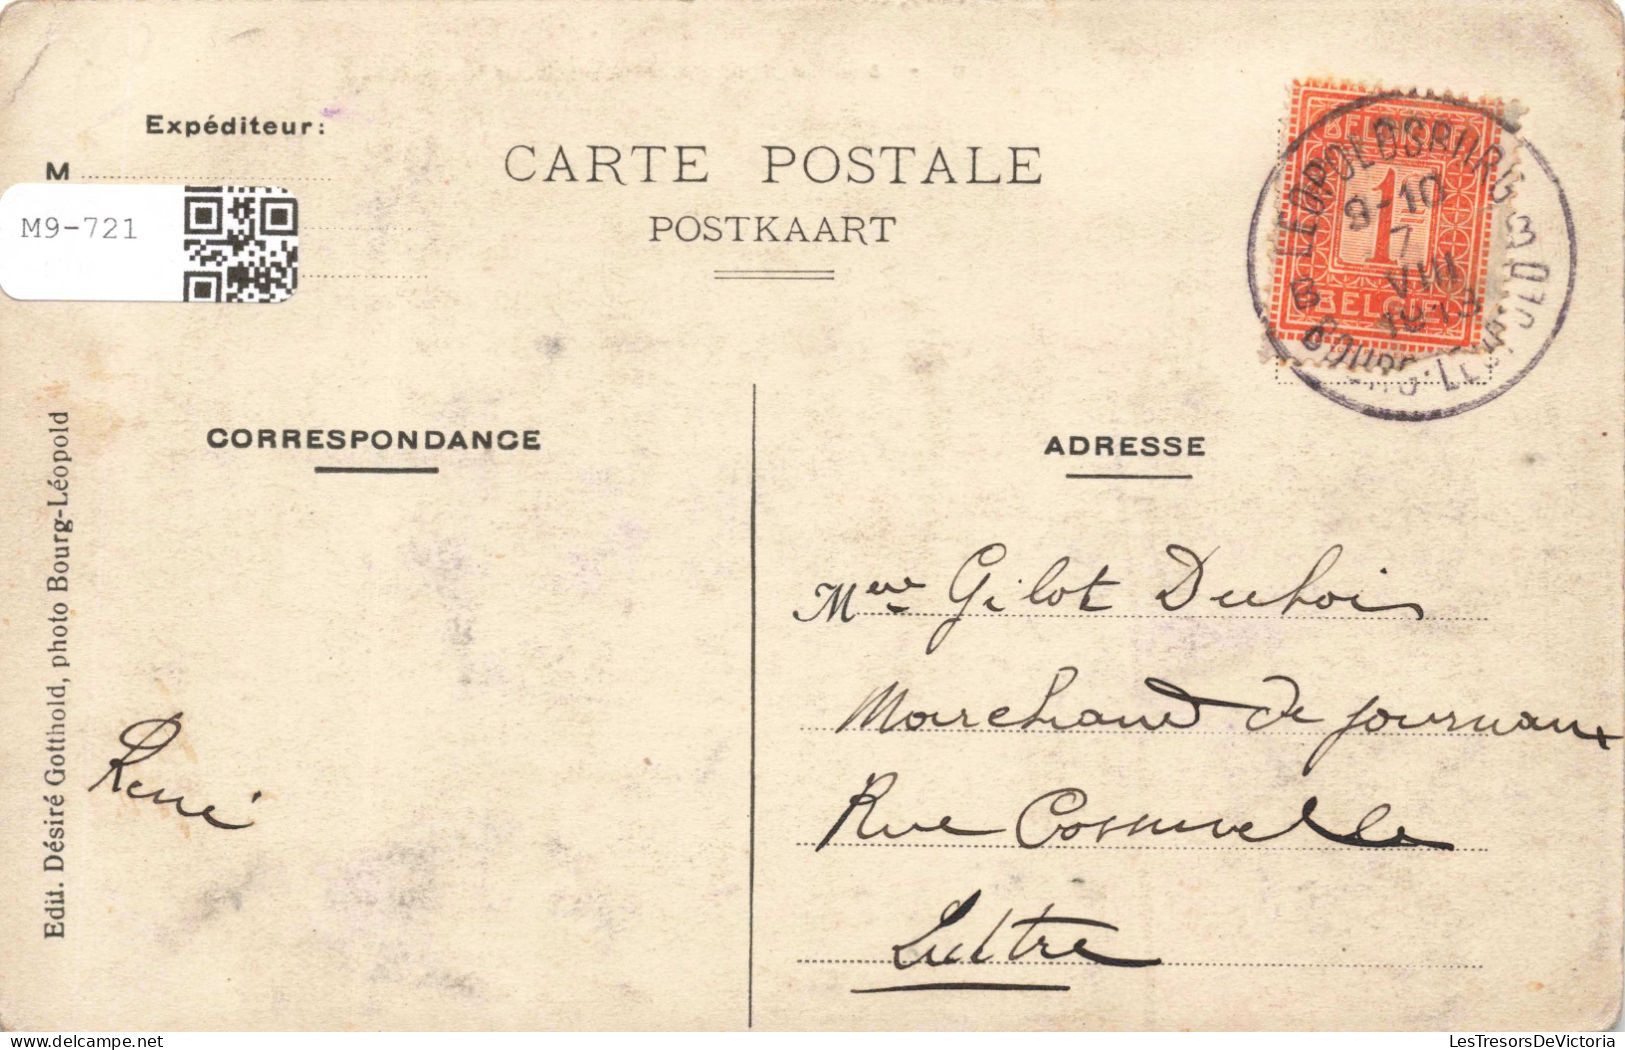 Expéditeur:
M
M9-721
CARTE POSTALE
POSTKAART
BELGIQUE
1
BELGIË
LEOPOLDSBURG
9-10
7
VIII
1913
B
BOURG-LÉOPOLD
CORRESPONDANCE
ADRESSE
Edit. Désiré Gotthold, photo Bourg-Léopold
René
Mme Gilot Dubois
Marchand de journaux
Rue
Luttre
LesTresorsDeVictoria
delcampe.net